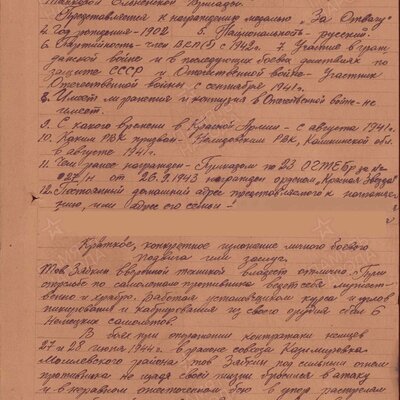 Танковой Ельнинской бригады.
Представляется к награждению медалью "За Отвагу"
4. Год рождения - 1902 5. Национальность - русский.
6. Партийность - член ВКП(б) с 1942 г. 7. Участие в граж
данской войне и в последующих боевых действиях по
защите СССР и Отечественной войне - Участник
Отечественной войны с сентября 1941 г.
8. Имеет ли ранения и контузия в Отечественной войне - не
имеет.
9. С какого времени в Красной Армии - с августа 1941 г.
10. Каким РВК призван - РВК, Калининской обл.
в августе 1941 г.
11. Чем ранее награжден - Приказом по 23 ОГТЕБр за №
027/н от 26.9.1943 награжден орденом "Красная Звезда"
12. Постоянный домашний адрес представляемого к награжде-
нию, или адрес его семьи -
Краткое, конкретное изложение личного боевого
подвига или заслуг.
Тов. Зябкин вверенной техникой владеет отлично. При
стрельбе по самолетам противника ведет себя мужест-
венно и храбро. Работая установщиком курса и углов
пикирования и кабрирования из своего орудия сбил 6
Немецких самолетов.
В бою при отражении контратаки немцев
27 и 28 июня 1944 г. в районе совхоза
района тов. Зябкин под сильным огнем
противника не щадя своей жизни бросился в атаку
и в неравном ожесточенном бою в упор расстрелял